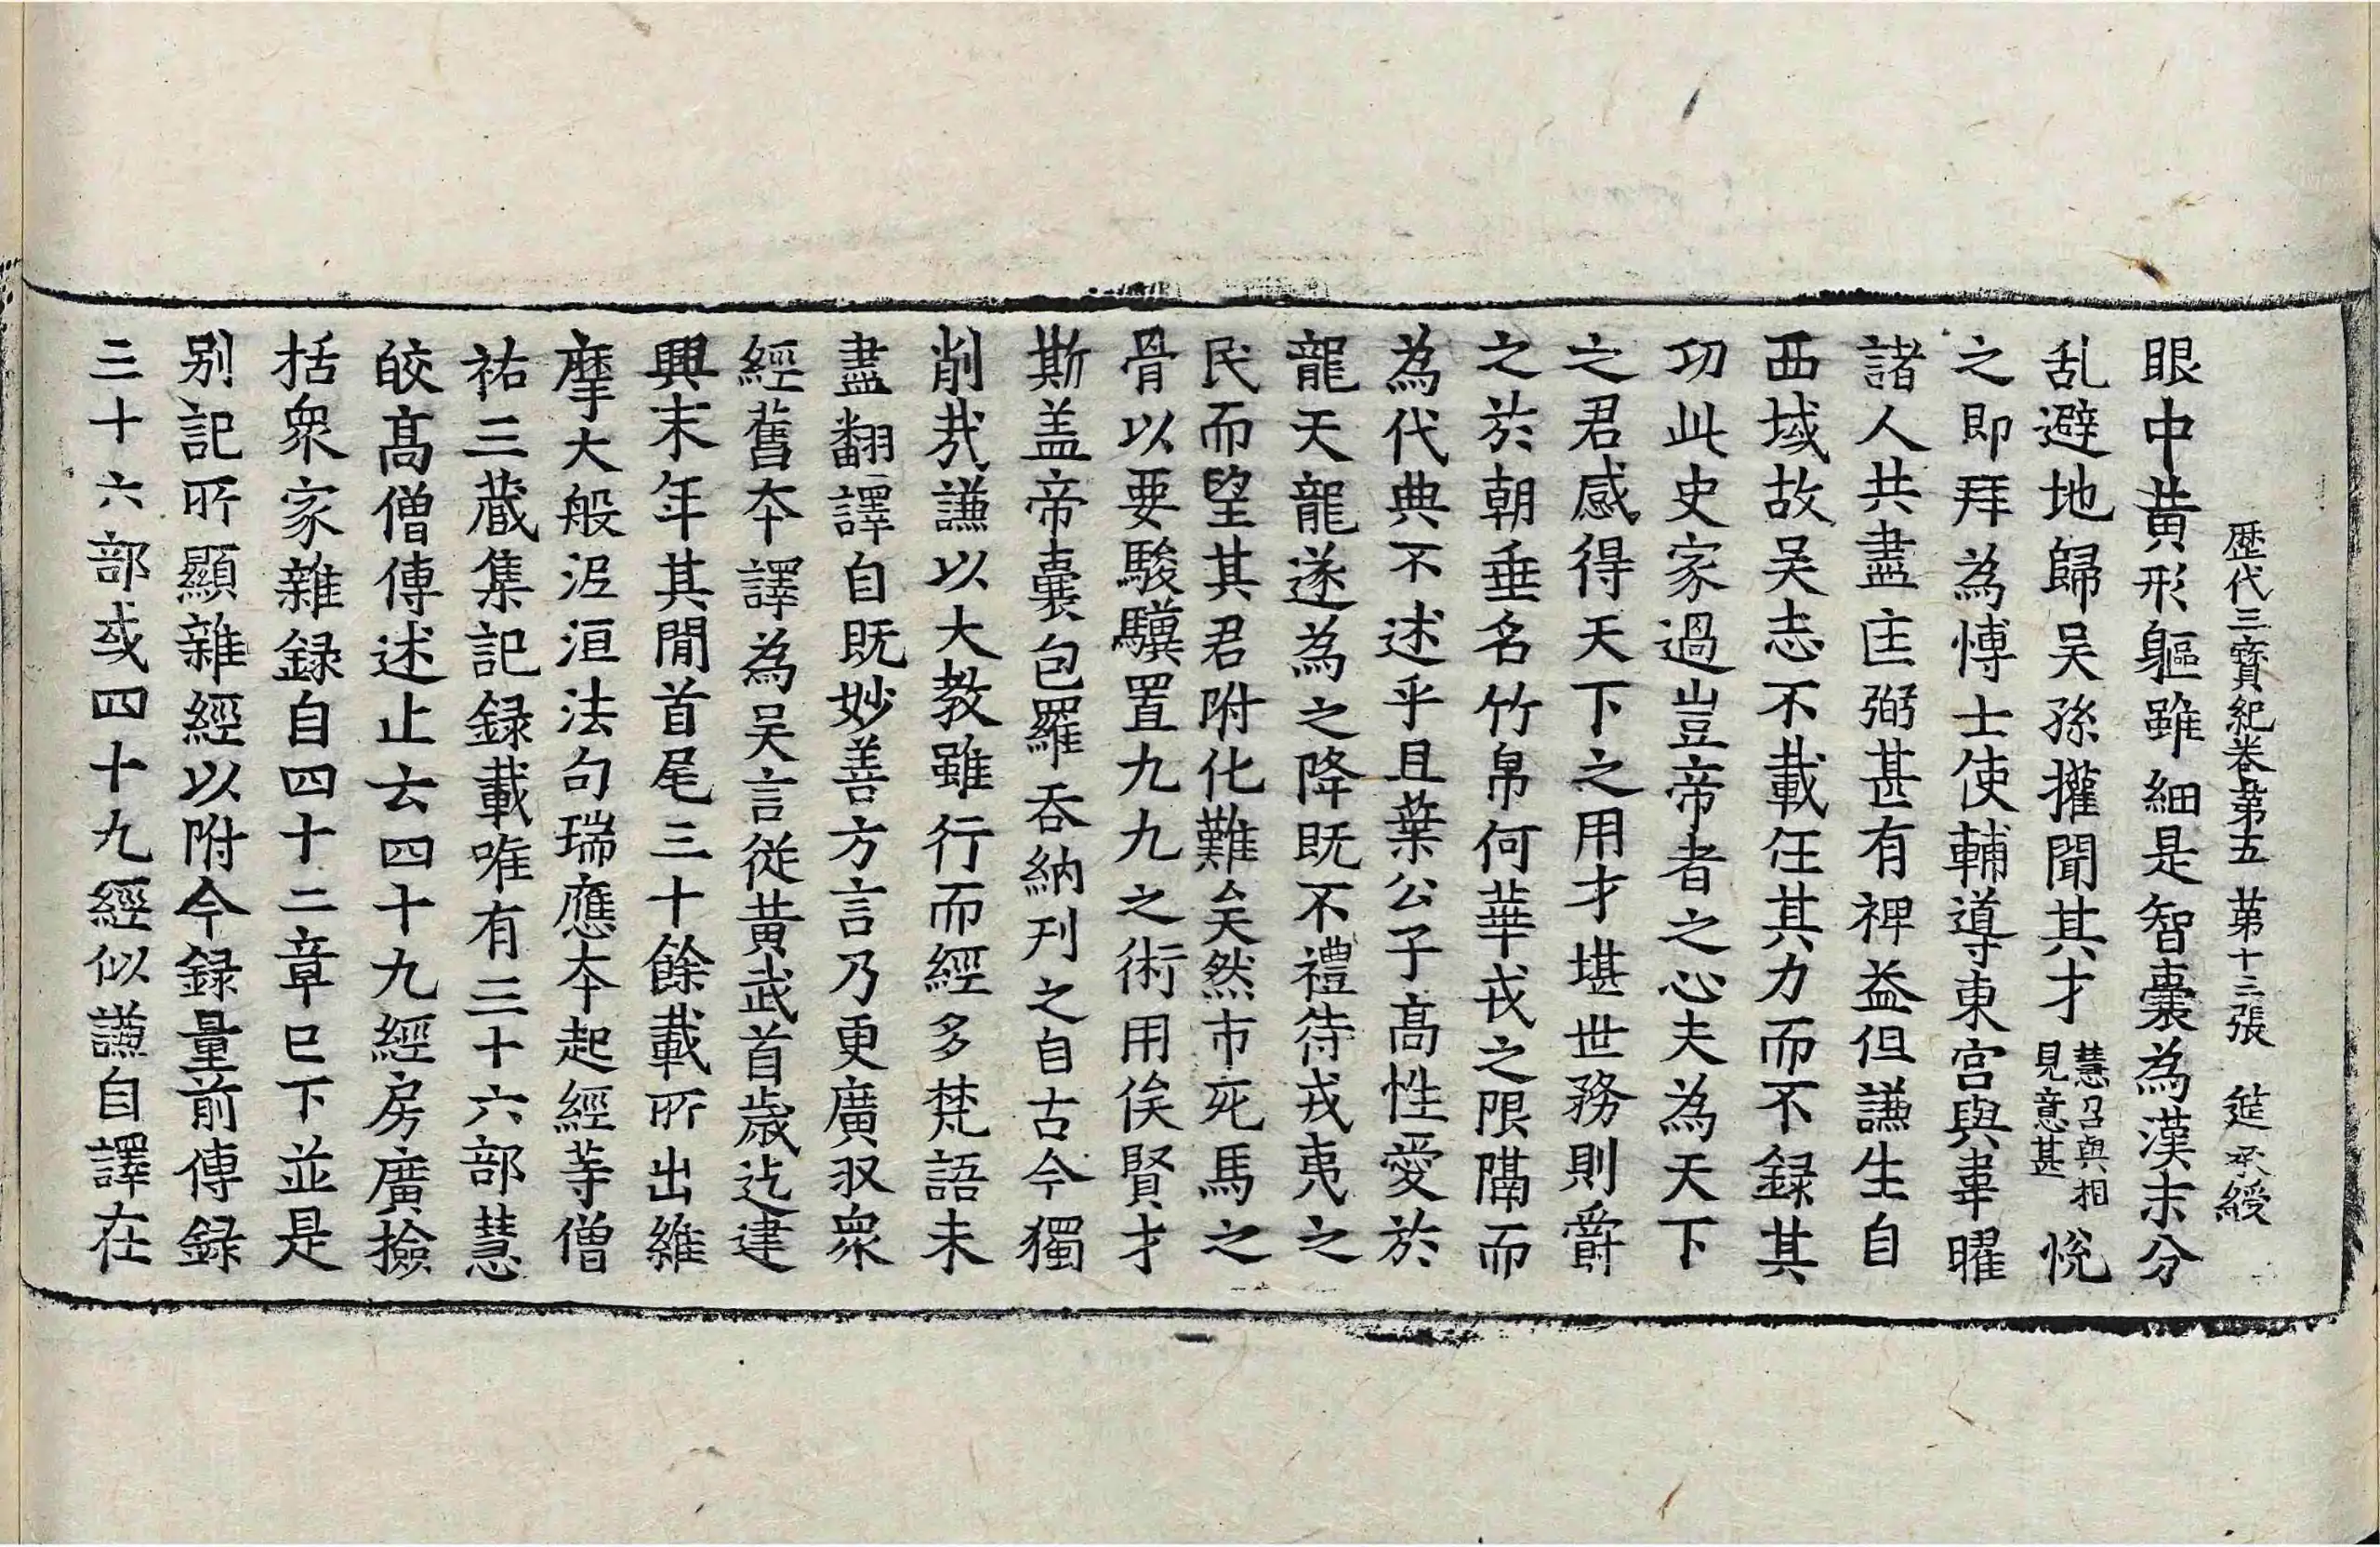 歷代三寶紀卷第五 第十三張 莚 承綬
眼中黃形軀雖細是智囊為漢末分
乱避地歸吳孫權聞其才慧召與相見意甚悅
之即拜為博士使輔導東宮與韋曜
諸人共盡匡弼甚有裨益但謙生自
西域故吳志不載任其力而不錄其
功此史家過豈帝者之心夫為天下
之君感得天下之用才堪世務則爵
之於朝垂名竹帛何華戎之限隔而
為代典不述乎且葉公子高性愛於
龍天龍遂為之降既不禮待戎夷之
民而望其君附化難矣然市死馬之
骨以要駿驥置九九之術用俟賢才
斯盖帝囊包羅吞納刊之自古今獨
削㢤謙以大教雖行而經多梵語未
盡翻譯自既妙善方言乃更廣収眾
經舊夲譯為吳言從黃武首歲迄建
興末年其閒首尾三十餘載所出維
摩大般泥洹法句瑞應夲起經等僧
祐三藏集記録載唯有三十六部慧
皎髙僧傳述止云四十九經房廣撿
括眾家雜録自四十二章已下並是
別記所顯雜經以附今録量前傳錄
三十六部或四十九經似謙自譯在